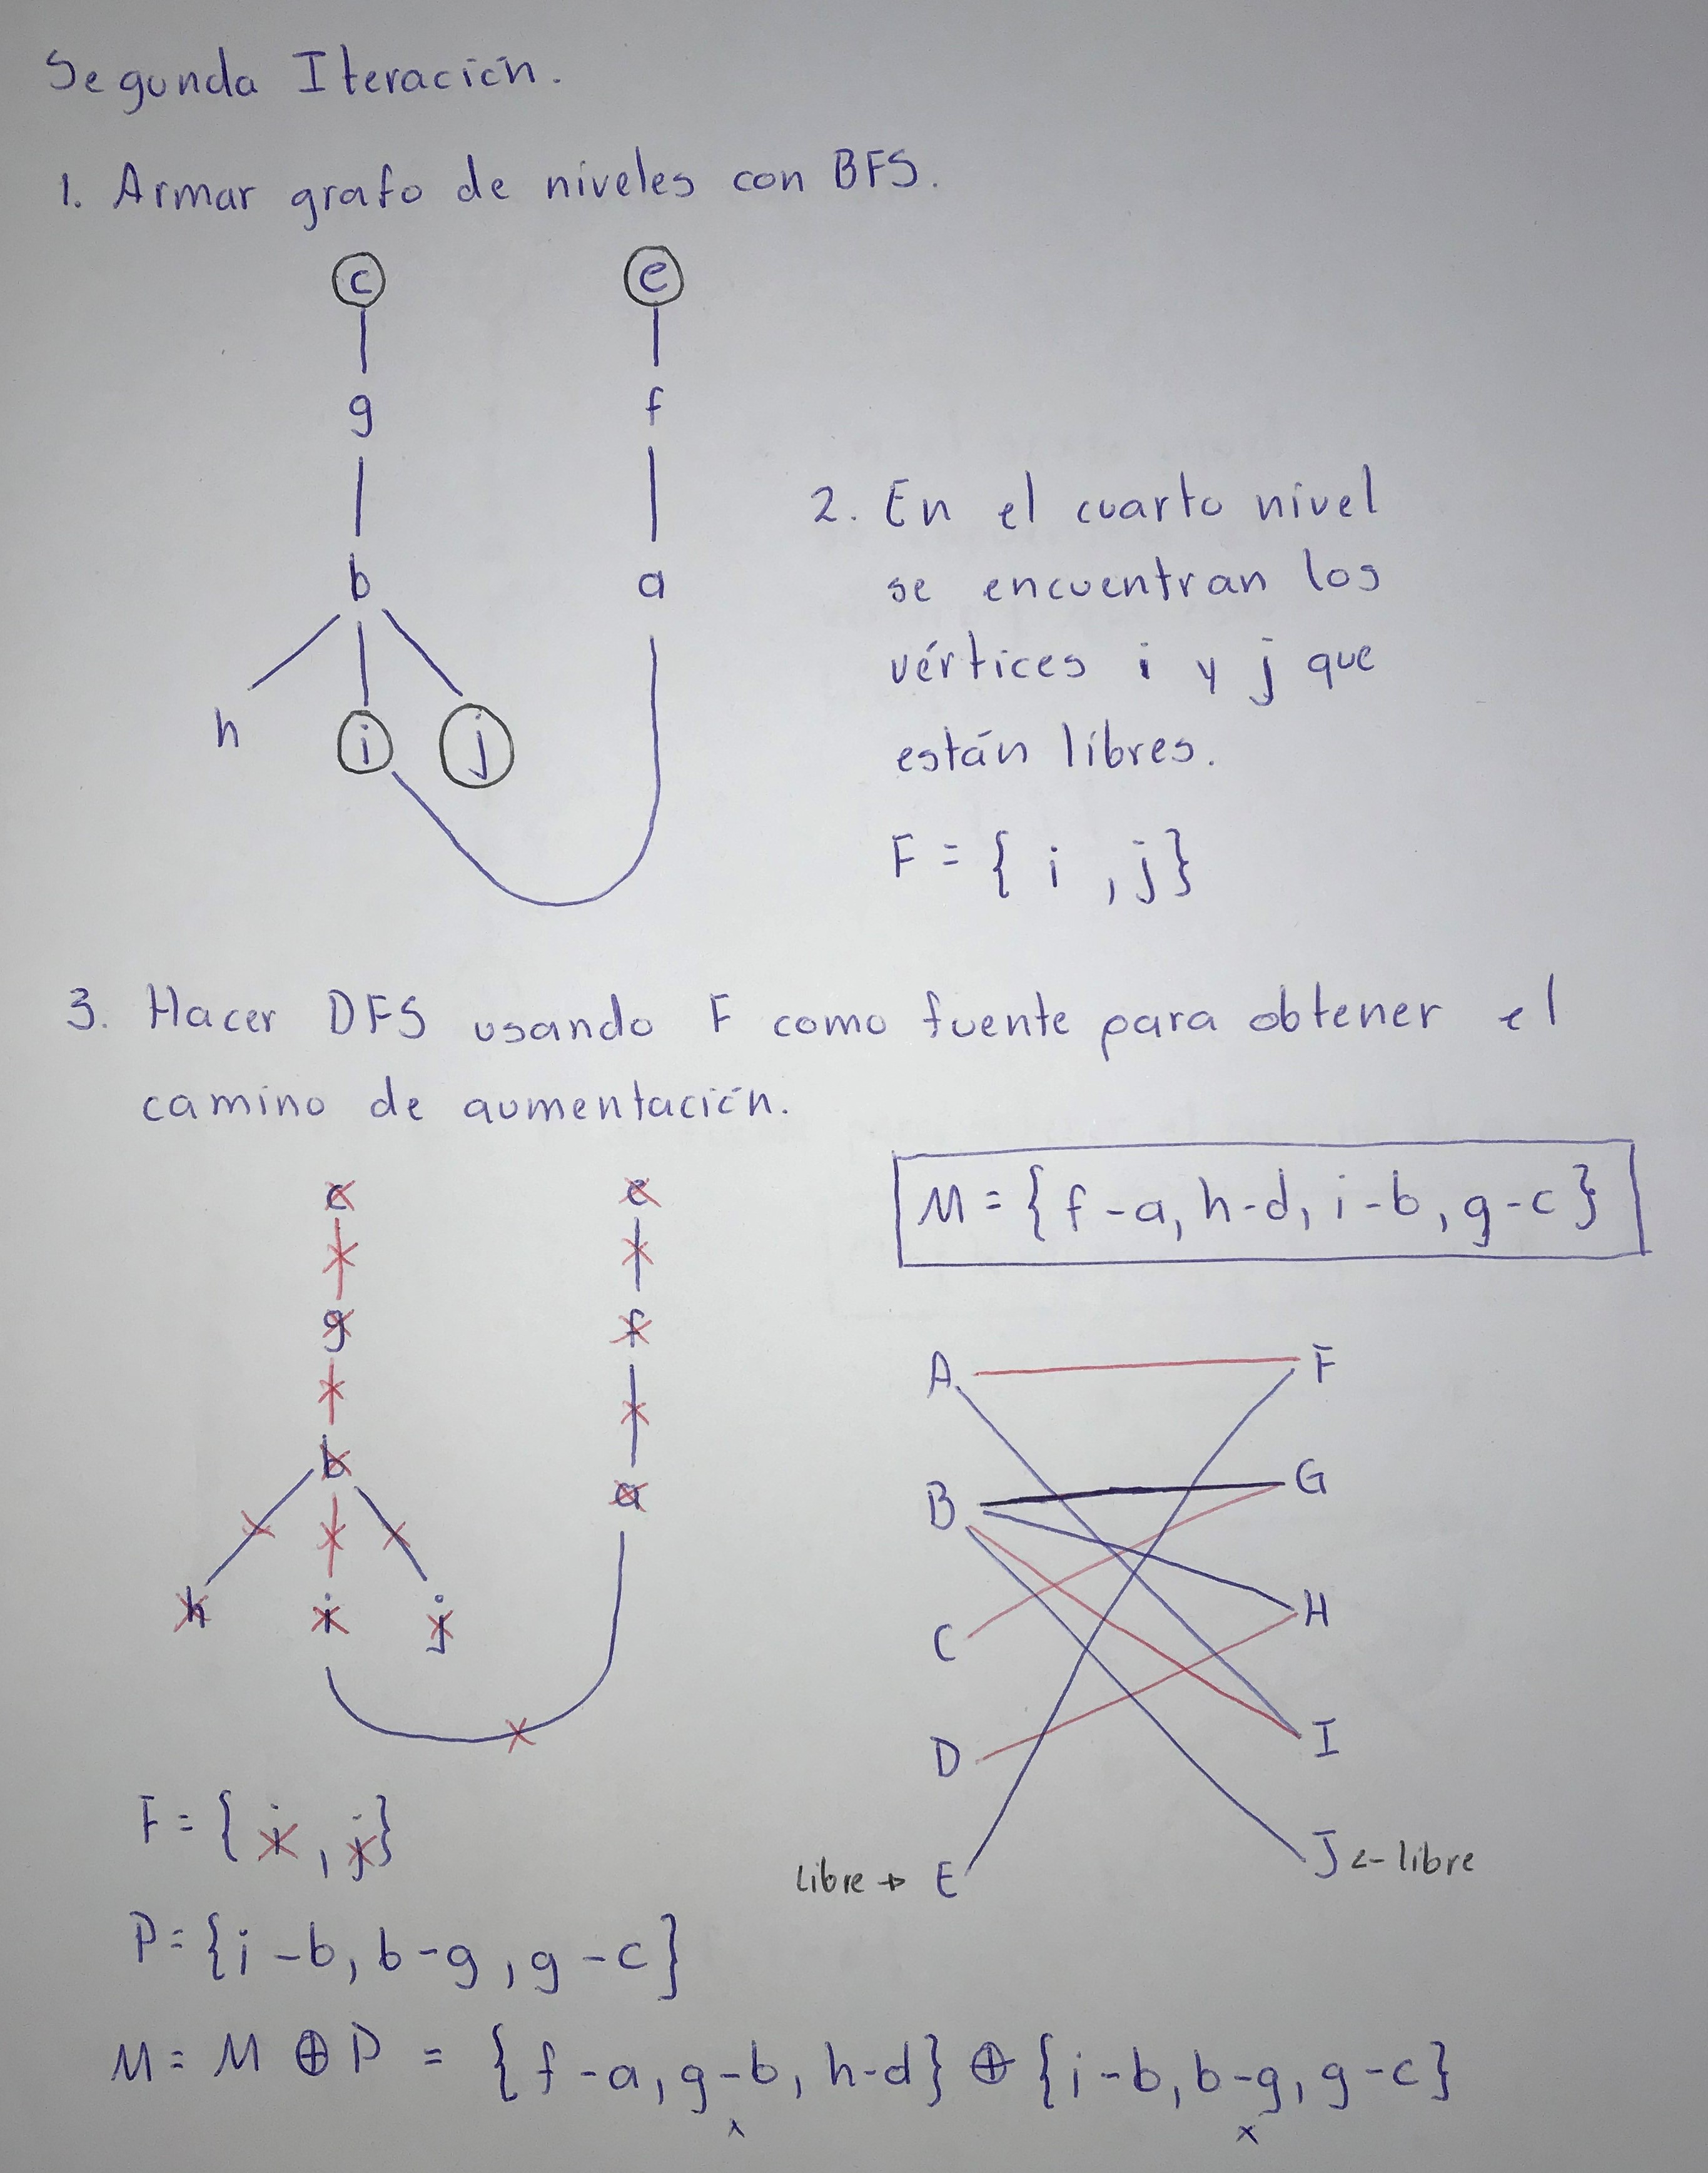 Segunda Iteración.
1. Armar grafo de niveles con BFS.
c e
g f
b a
h i j
2. En el cuarto nivel
se encuentran los
vértices i y j que
están libres.
F = { i , j}
3. Hacer DFS usando F como fuente para obtener el
camino de aumentación.
M = { f-a, h-d, i-b, g-c }
c e
g f
b a
h i j
A F
B G
C H
D I
libre → E J <- libre
F = { i , j}
P = {i-b, b-g, g-c}
M = M ⊕ P = {f-a, g-b, h-d} ⊕ {i-b, b-g, g-c}
x x